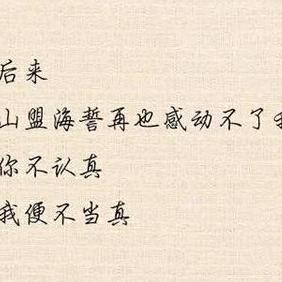 后来
山盟海誓再也感动不了
你不认真
我便不当真